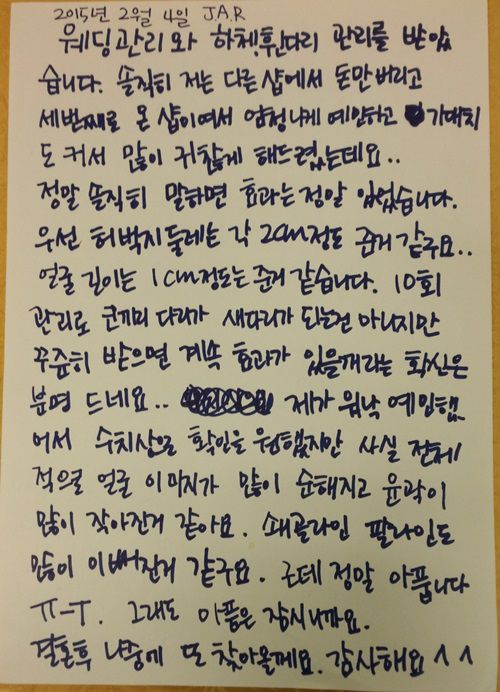 2015년 2월 4일 J.A.R
웨딩관리와 하체, 휜다리 관리를 받았
습니다. 솔직히 저는 다른 샵에서 돈만버리고
세번째로 온 샵이여서 엄청나게 예민하고 기대치
도 커서 많이 귀찮게 해드렸는데요..
정말 솔직히 말하면 효과는 정말 있었습니다.
우선 허벅지둘레는 각 2cm정도 준거 같구요..
얼굴 길이는 1cm정도는 준거 같습니다. 10회
관리로 코끼리 다리가 새다리가 되는건 아니지만
꾸준히 받으면 계속 효과가 있을꺼라는 확신은
분명 드네요.. 제가 워낙 예민했
어서 수치상으로 확인을 원했지만 사실 전체
적으로 얼굴 이미지가 많이 순해지고 윤곽이
많이 작아진거 같아요. 쇄골라인 팔라인도
많이 이뻐진거 같구요. 근데 정말 아픕니다
ㅠ-ㅜ. 그래도 아픔은 잠시니까요.
결혼후 나중에 또 찾아올께요. 감사해요^^